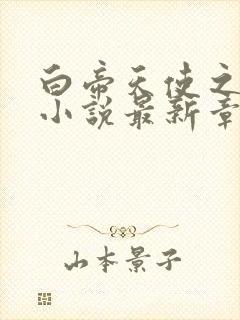 白帝天使之
小說最新章
山本景子